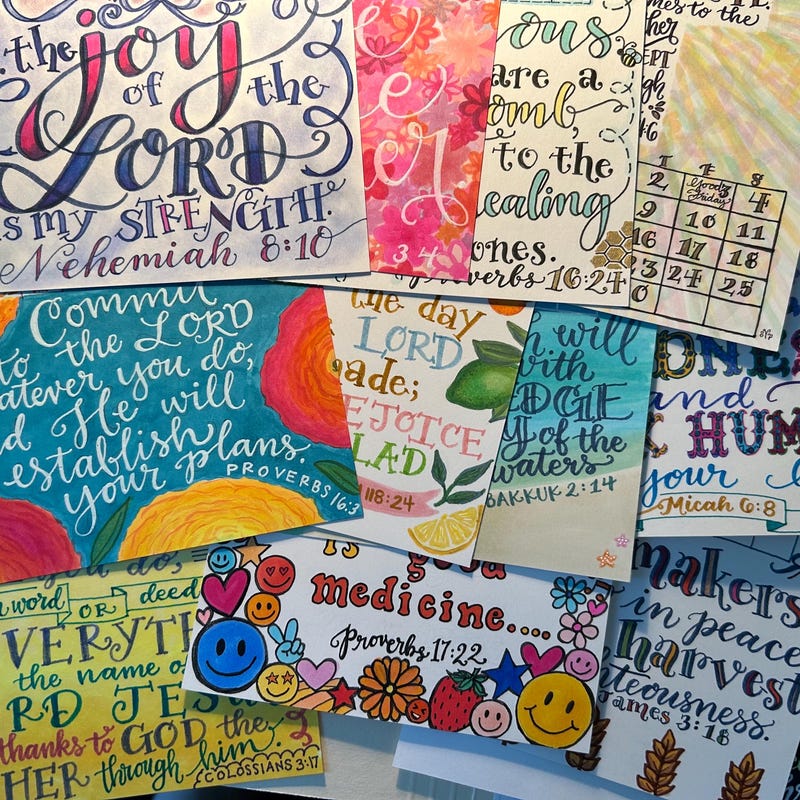 the joy
of the
LORD
is my STRENGTH.
Nehemiah 8:10
3 4
ous
are a
omb,
to the
ealing
ones.
Proverbs 16:24
mes to the
her
EPT
gh
46
T F S
2 Good Friday 3 4
9 10 11
16 17 18
23 24 25
0
Commit
to the LORD
atever you do,
d He will
establish
your plans.
PROVERBS 16:3
the day
LORD
ade;
EJOICE
LAD
118:24
will
with
EDGE
of the
waters
BAKKUK 2:14
ONE
and
HUM
your
Micah 6:8
you do,
word OR deed
VERYTH
the name o
RD JES
thanks to GOD the
HER through him.
COLOSSIANS 3:17
is good
medicine....
Proverbs 17:22
makers
in peace
harvest
hteousness.
James 3:18